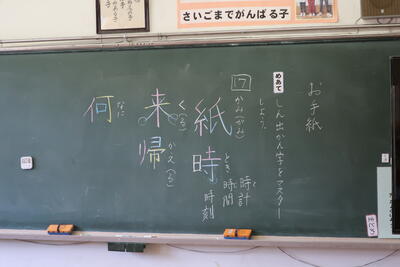 さいごまでがんばる子
お手紙
めあて
しん出かん字をマスター
しよう。
17
かみ(がみ)
紙
とき
時
時計
時間
時刻
く(る)
来
かえ(る)
帰
なに
何